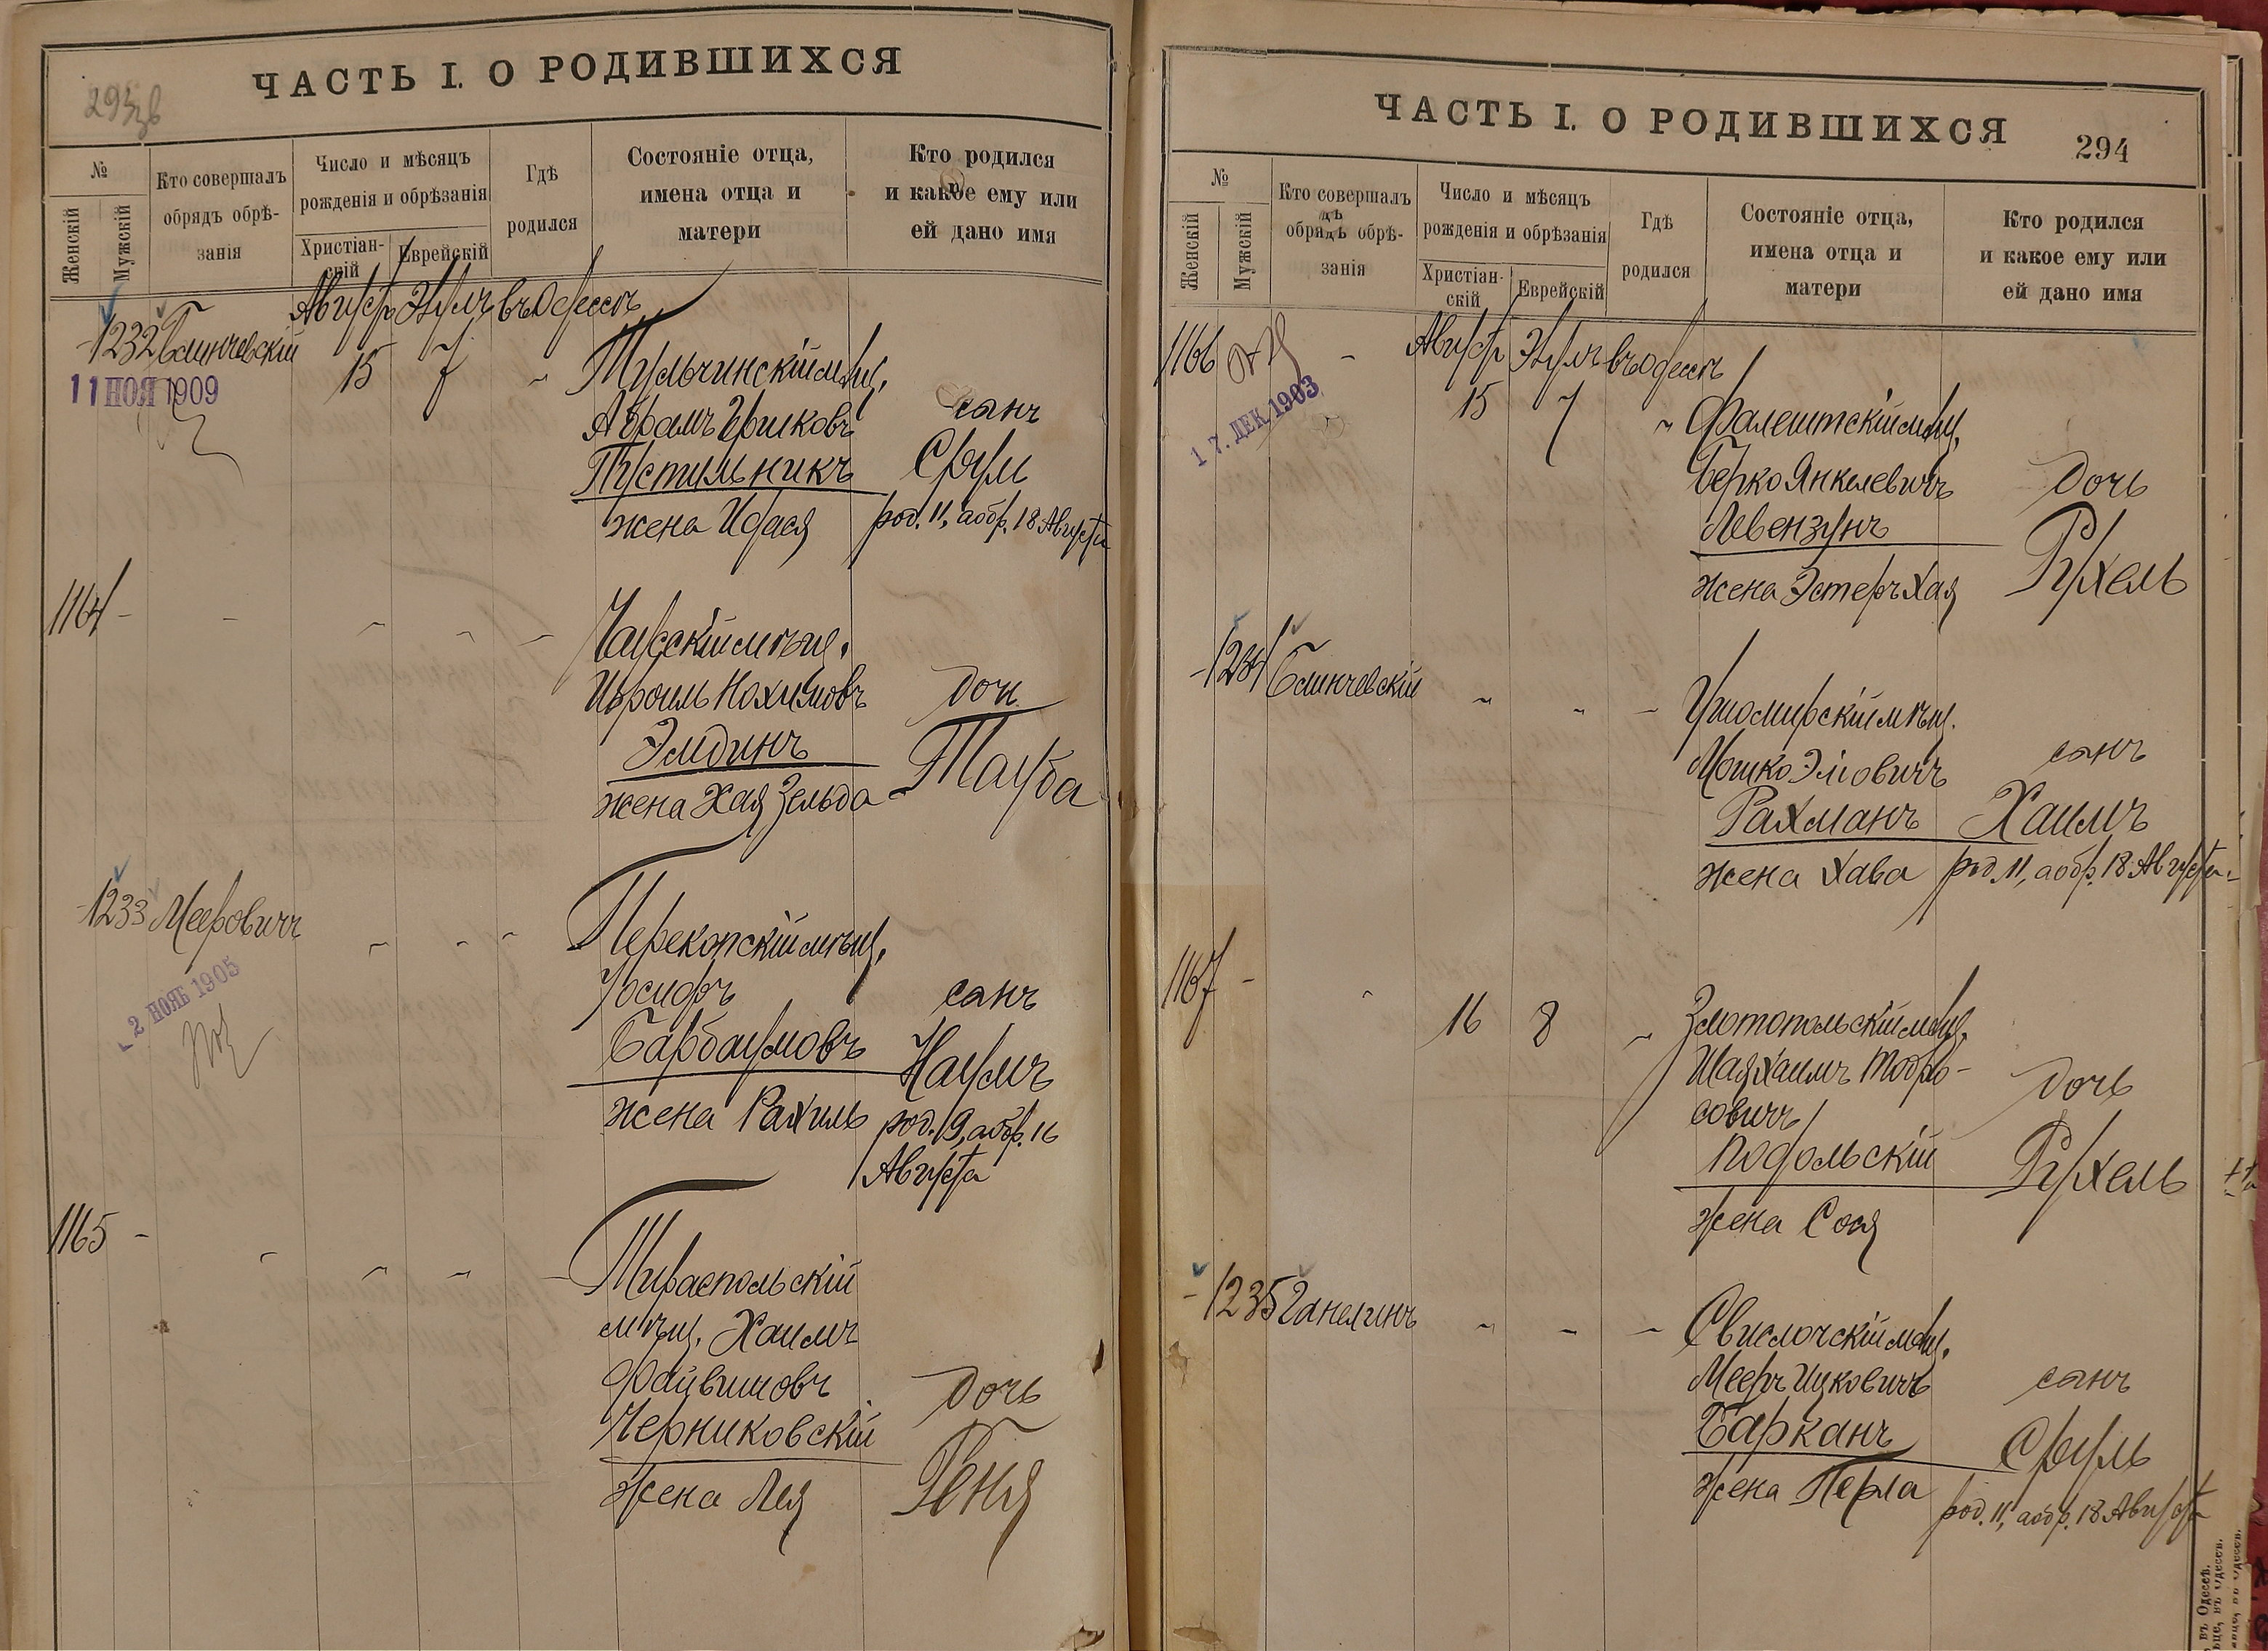 ЧАСТЬ I. О РОДИВШИХСЯ
№
Женскій
Мужскій
Кто совершалъ
обрядъ обрѣ-
занія
Число и мѣсяцъ
рожденія и обрѣзанія
Христіан-
скій
Еврейскій
Гдѣ
родился
Состояніе отца,
имена отца и
матери
Кто родился
и какое ему или
ей дано имя
Августъ Элулъ въ Одессѣ
1232 Блинчевскій
15 7 Тульчинскій мѣщ.
11 НОЯ 1909
Абрамъ Гершковъ сынъ
Пустильникъ Сруль
жена Идася род. 11, а обр. 18 Августа
1164
мѣщ.
Изроиль Нохимовъ дочь
Элидинъ
жена Хая Зельда Тауба
1233 Мееровичъ
Перекопскій мѣщ.
2 НОЯБ 1905
Іосифъ сынъ
Барбаумовъ Наумъ
жена Рахиль род. 9, а обр. 16
Августа
1165
Тираспольскій
мѣщ. Хаимъ
Файвишовъ дочь
Черниковскій
жена Лея Геня
ЧАСТЬ I. О РОДИВШИХСЯ 294
№
Женскій
Мужскій
Кто совершалъ
обрядъ обрѣ-
занія
Число и мѣсяцъ
рожденія и обрѣзанія
Христіан-
скій
Еврейскій
Гдѣ
родился
Состояніе отца,
имена отца и
матери
Кто родился
и какое ему или
ей дано имя
1166 Августъ Элулъ въ Одессѣ
15 7 Фалештскій мѣщ.
17. ДЕК. 1903
Берко Янкелевичъ дочь
Левензунъ
жена Эстеръ Хая Рухель
1234 Блинчевскій
Ушомирскій мѣщ.
Мошко Эліовичъ сынъ
Рахманъ Хаимъ
жена Хава род. 11, а обр. 18 Августа
1167
16 8 Златопольскій мѣщ.
Шая Хаимъ Тодро-
совичъ дочь
Подольскій Рухель
жена Сося
1235 Ганелинъ
Свислочскій мѣщ.
Мееръ Ицковичъ сынъ
Барканъ Сруль
жена Перла род. 11, а обр. 18 Августа